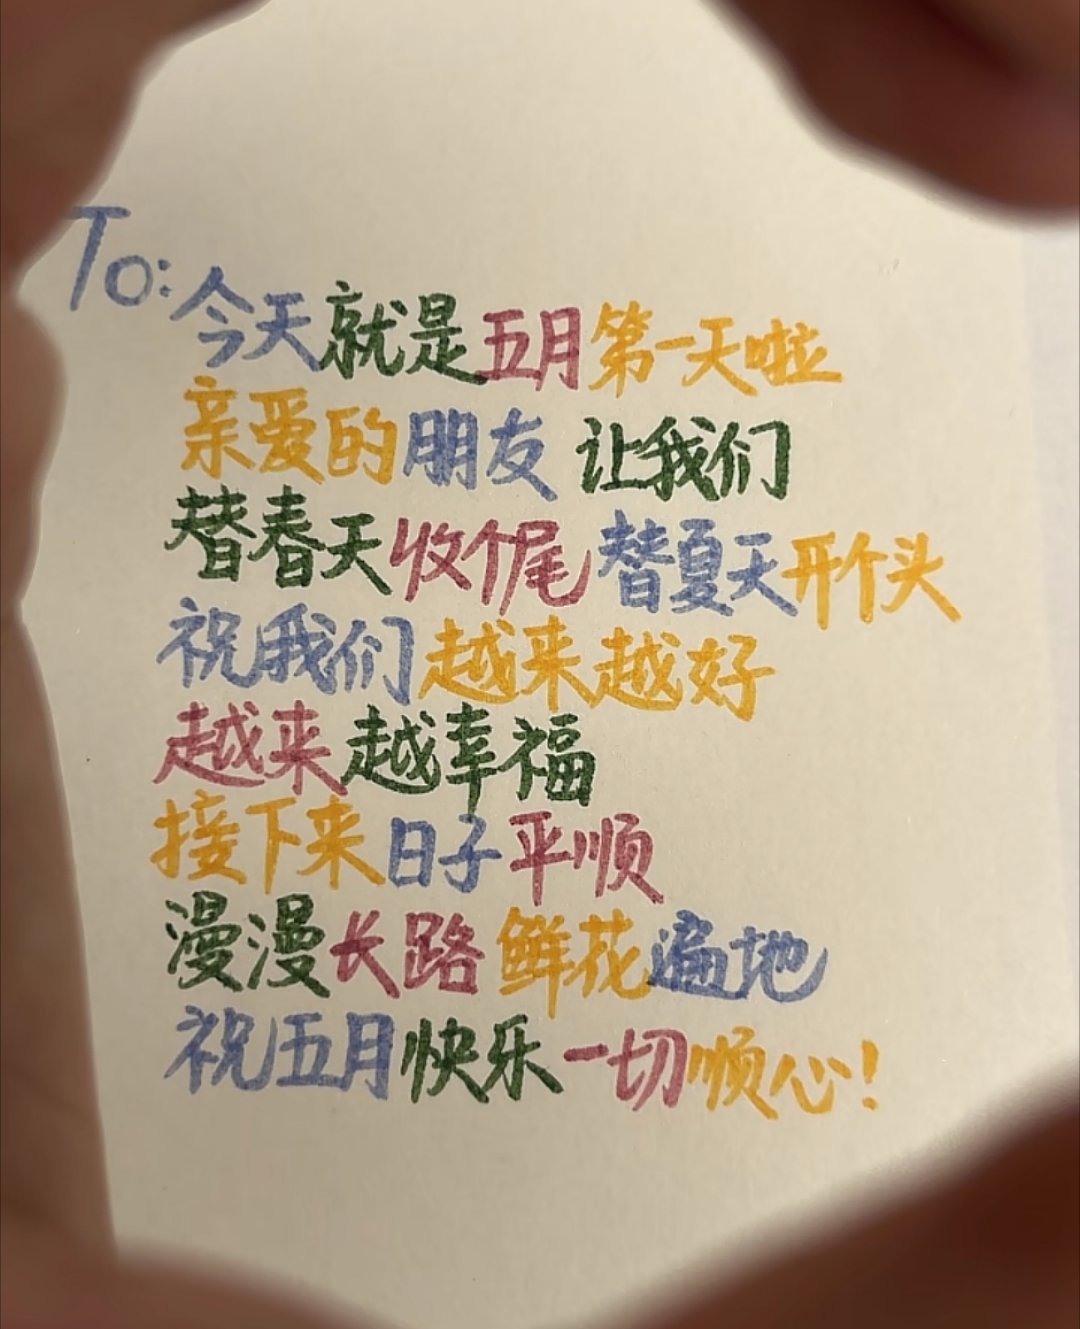 To: 今天就是五月第一天啦
亲爱的朋友 让我们
替春天收个尾 替夏天开个头
祝我们越来越好
越来越幸福
接下来日子平顺
漫漫长路 鲜花遍地
祝五月快乐一切顺心!